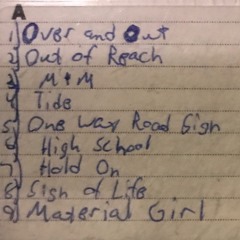 A
1) Over and Out
2) Out of Reach
3) M + M
4) Tide
5) One Way Road Sign
6) High School
7) Hold On
8) Sign of Life
9) Material Girl